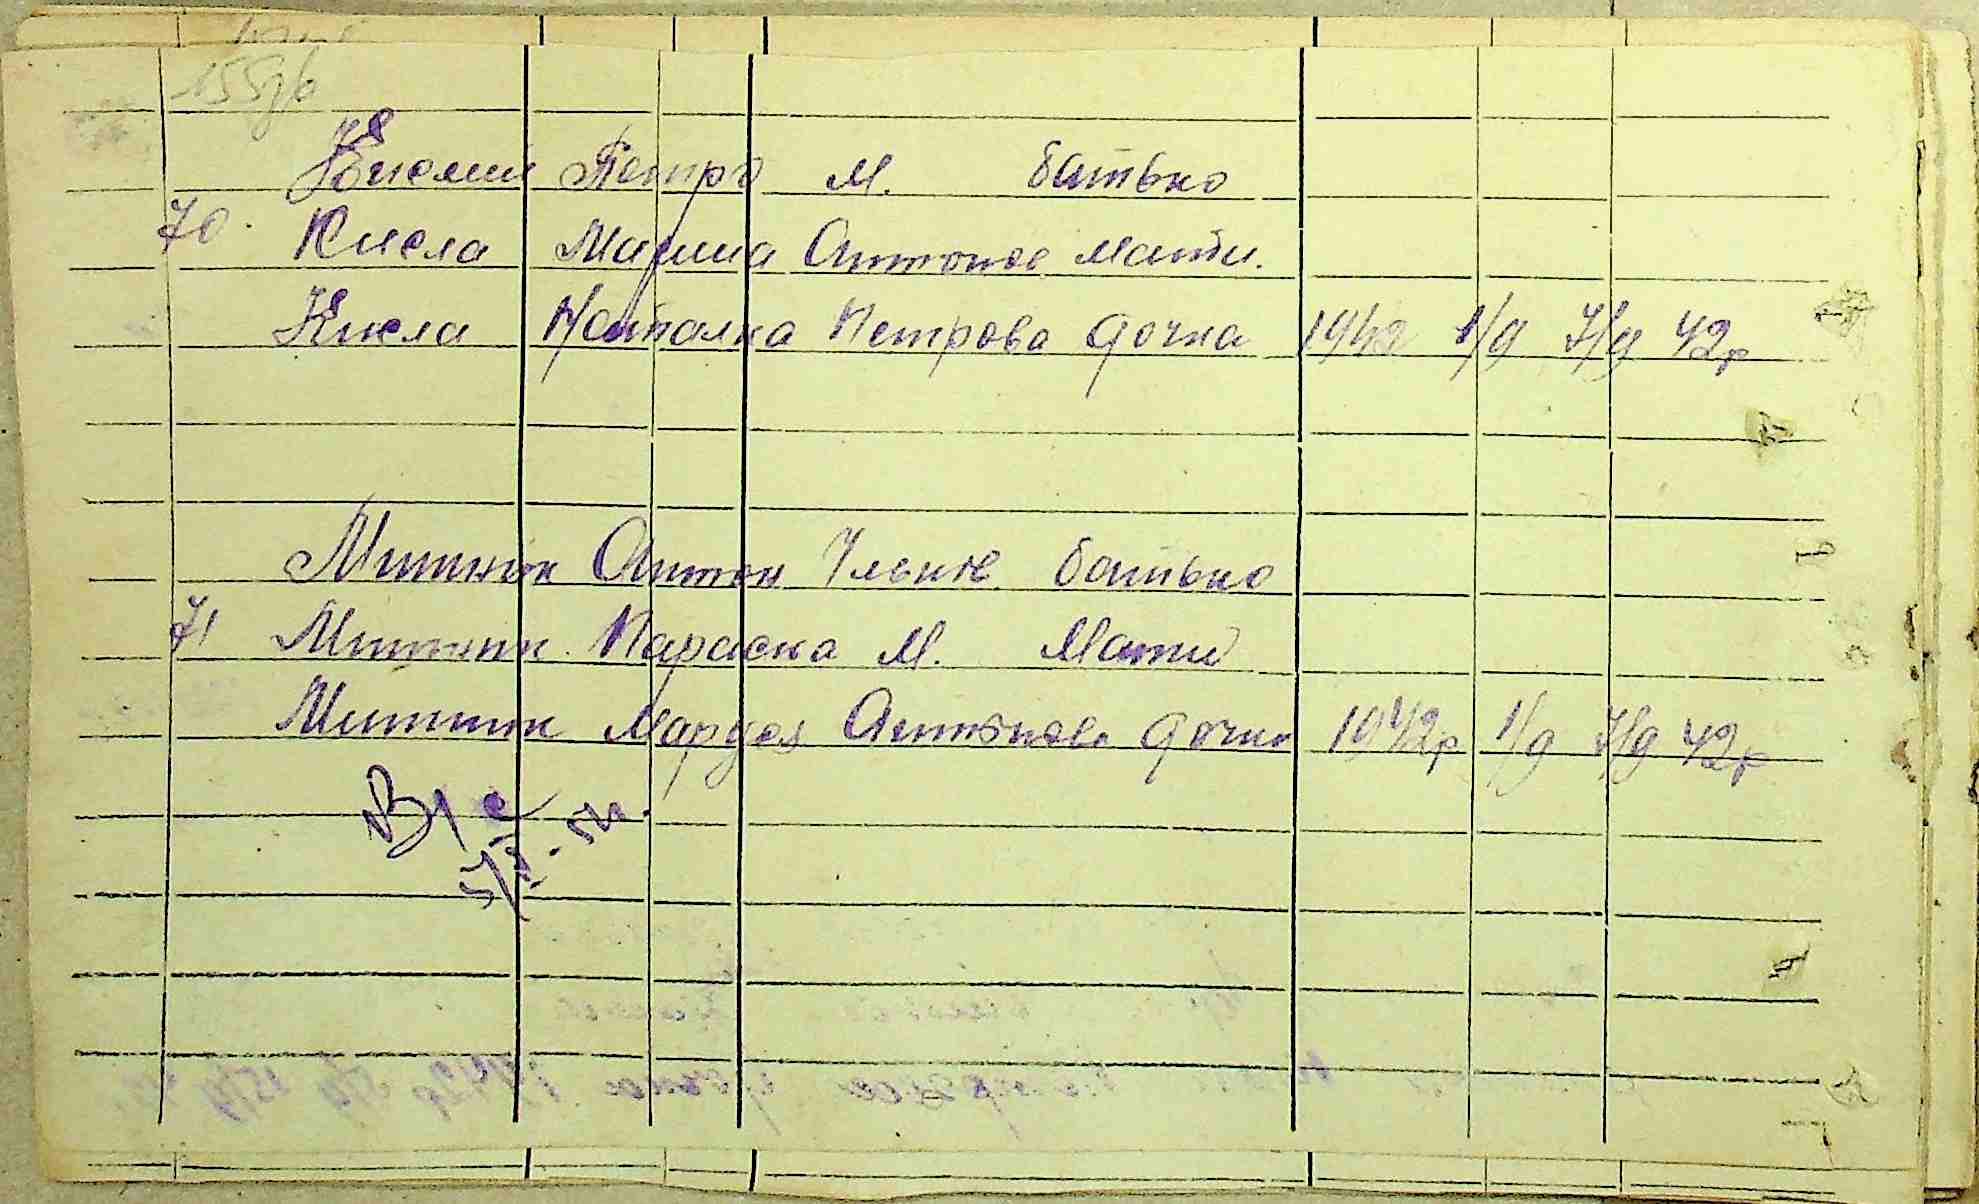 155зв
Кислий Петро М. батько
70. Кисла Марина Антонов мати.
Кисла Наталка Петрова дочка 1942 1/9 7/9 42р
Митник Антон Ільків батько
71 Митник Параска М. Мати
Митник Маруся Антонова дочка 1942р 1/9 7/9 42р